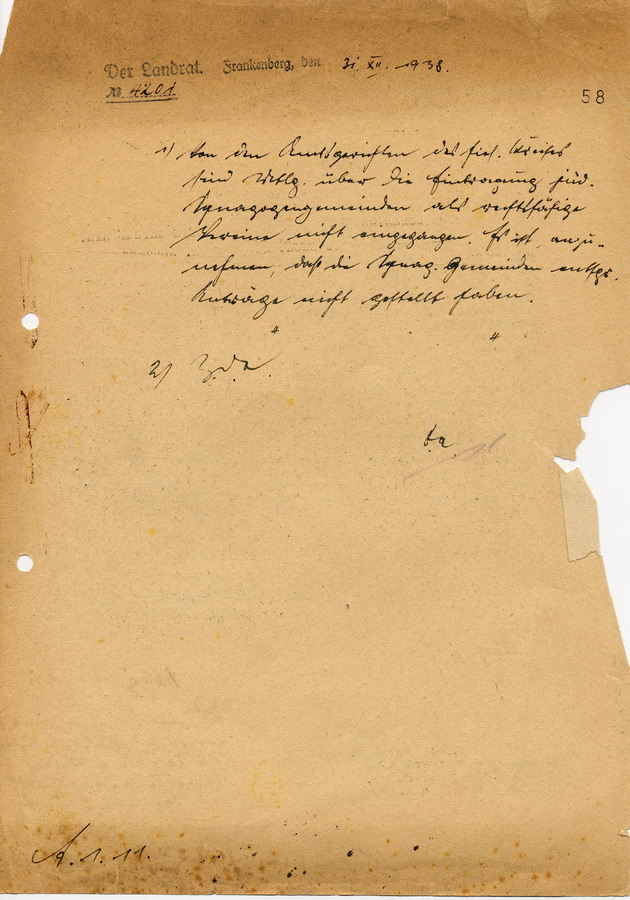 Der Landrat. Frankenberg, den 31. XII. 1938.
№ 4201
58
1) Von den Amtsgerichten des hies. Kreises
sind Mttlg. über die Eintragung jüd.
Synagogengemeinden als rechtsfähige
Vereine nicht eingegangen. Es ist anzu-
nehmen, daß die Synag. Gemeinden entspr.
Anträge nicht gestellt haben.
2) Z.d.A.
A. 1. 11.